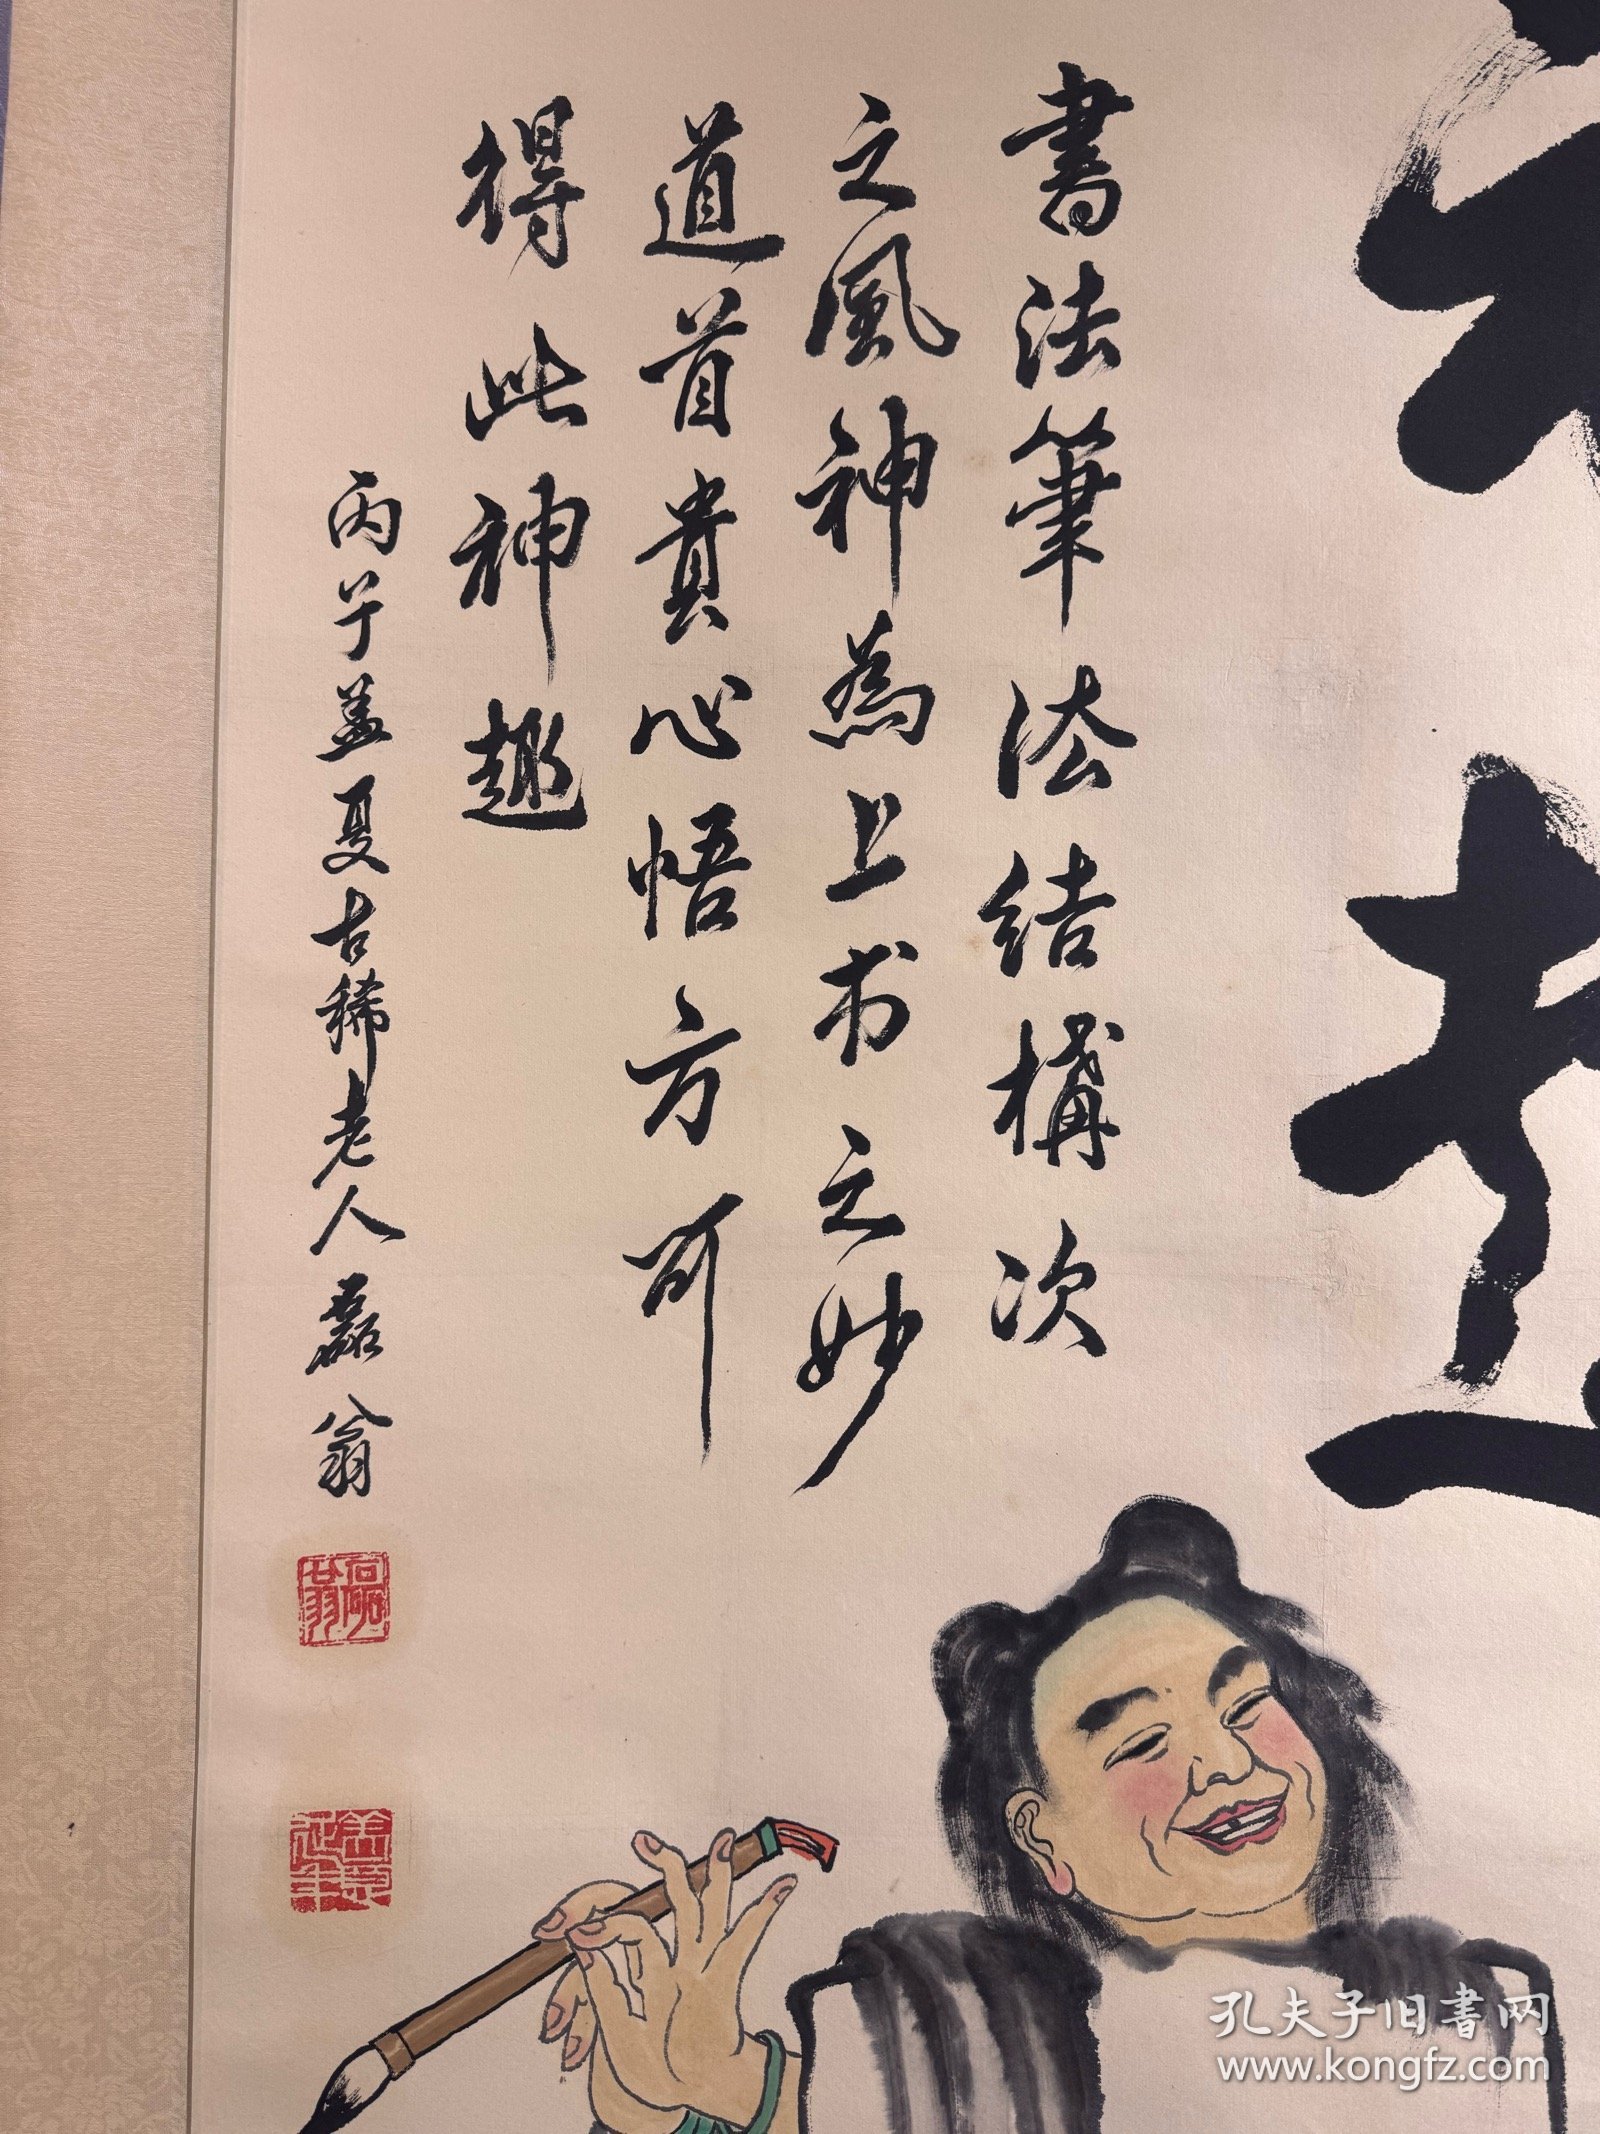 書法筆法結構次
之風神為上书之妙
道首貴心悟方可
得此神趣
丙子孟夏古稀老人磊翁
孔夫子旧書网
www.kongfz.com